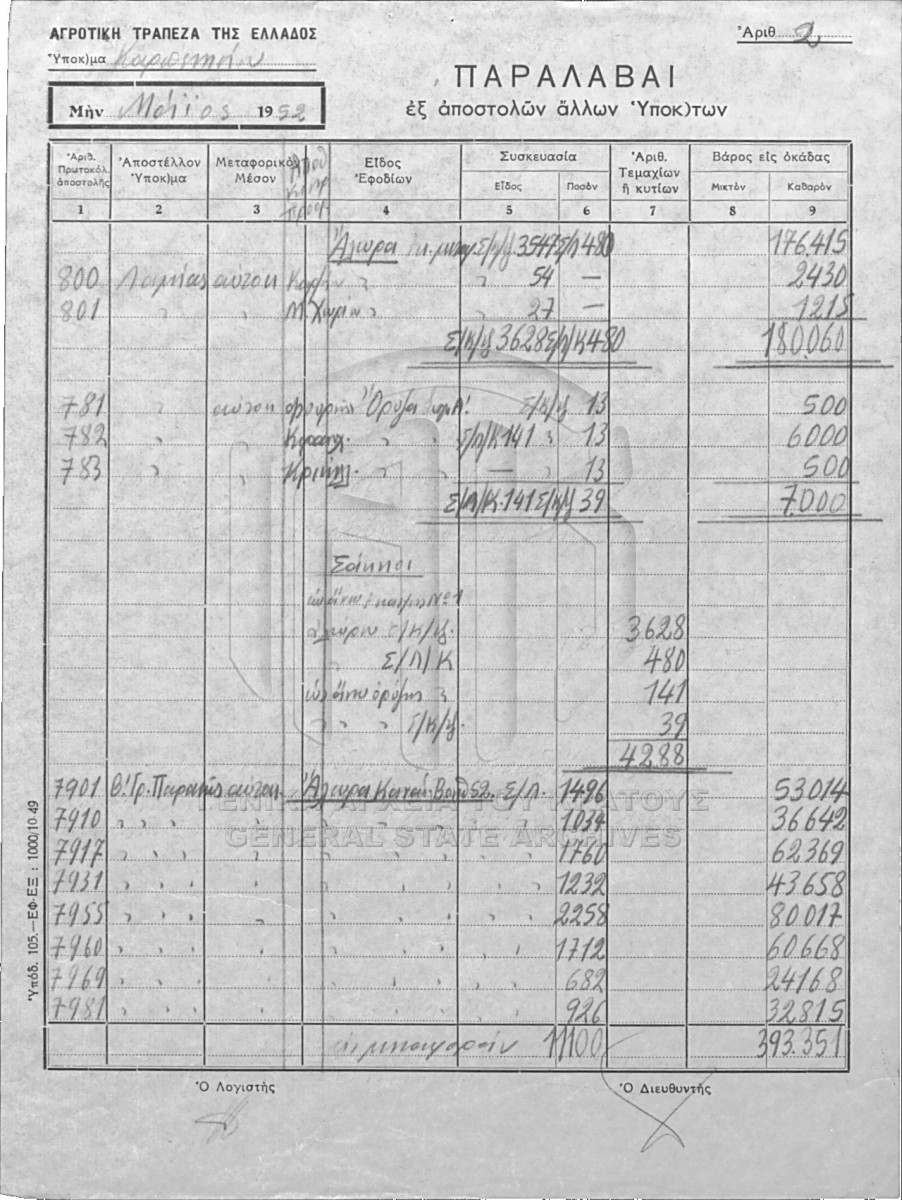 ΑΓΡΟΤΙΚΗ ΤΡΑΠΕΖΑ ΤΗΣ ΕΛΛΑΔΟΣ
Ἀριθ. 2
Ὑποκ)μα
ΠΑΡΑΛΑΒΑΙ
ἐξ ἀποστολῶν ἄλλων Ὑποκ)των
Μὴν Μάϊος 1952
Ἀριθ. Πρωτοκόλ. ἀποστολῆς
Ἀποστέλλον Ὑποκ)μα
Μεταφορικὸν Μέσον
Εἶδος Ἐφοδίων
Συσκευασία
Εἶδος Ποσὸν
Ἀριθ. Τεμαχίων ἢ κυτίων
Βάρος εἰς ὀκάδας
Μικτὸν Καθαρὸν
1 2 3 4 5 6 7 8 9
Ἄλευρα Σ/κ/ζ. 3547 Σ/π 480 176.415
800 Λαμίας αὐτοκ 54 — 2430
801 " " Μ. Χωρίον " " 27 — 1215
Σ/κ/ζ 3628 Σ/π/κ 480 180.060
781 " αὐτοκ Ὄρυζα Σ/κ/ζ 13 500
782 " " " Σ/π/κ 141 " 13 6000
783 " " " " — " 13 500
Σ/π/κ. 141 Σ/κ/ζ 39 7.000
Σάκκοι
ἀλεύρου Σ/κ/ζ. 3628
" Σ/Π/Κ 480
ὡς ἄνω ὀρύζης " 141
" " " Σ/κ/ζ. 39
4288
7901 αὐτοκ. Ἄλευρα Σ/Π. 1496 53014
7910 " " " " " " " " 1034 36642
7917 " " " " " " " " 1760 62369
7931 " " " " " " " " 1232 43658
7955 " " " " " " " " 2258 80017
7960 " " " " " " " " 1712 60668
7969 " " " " " " " " 682 24168
7981 " " " " " " " " 926 32815
εἰς μεταφορὰν 11100 393.351
Ὁ Λογιστής
Ὁ Διευθυντής
Ὑπόδ. 105.—ΕΦ·ΕΞ : 1000/10·49
ΓΕΝΙΚΑ ΑΡΧΕΙΑ ΤΟΥ ΚΡΑΤΟΥΣ
GENERAL STATE ARCHIVES